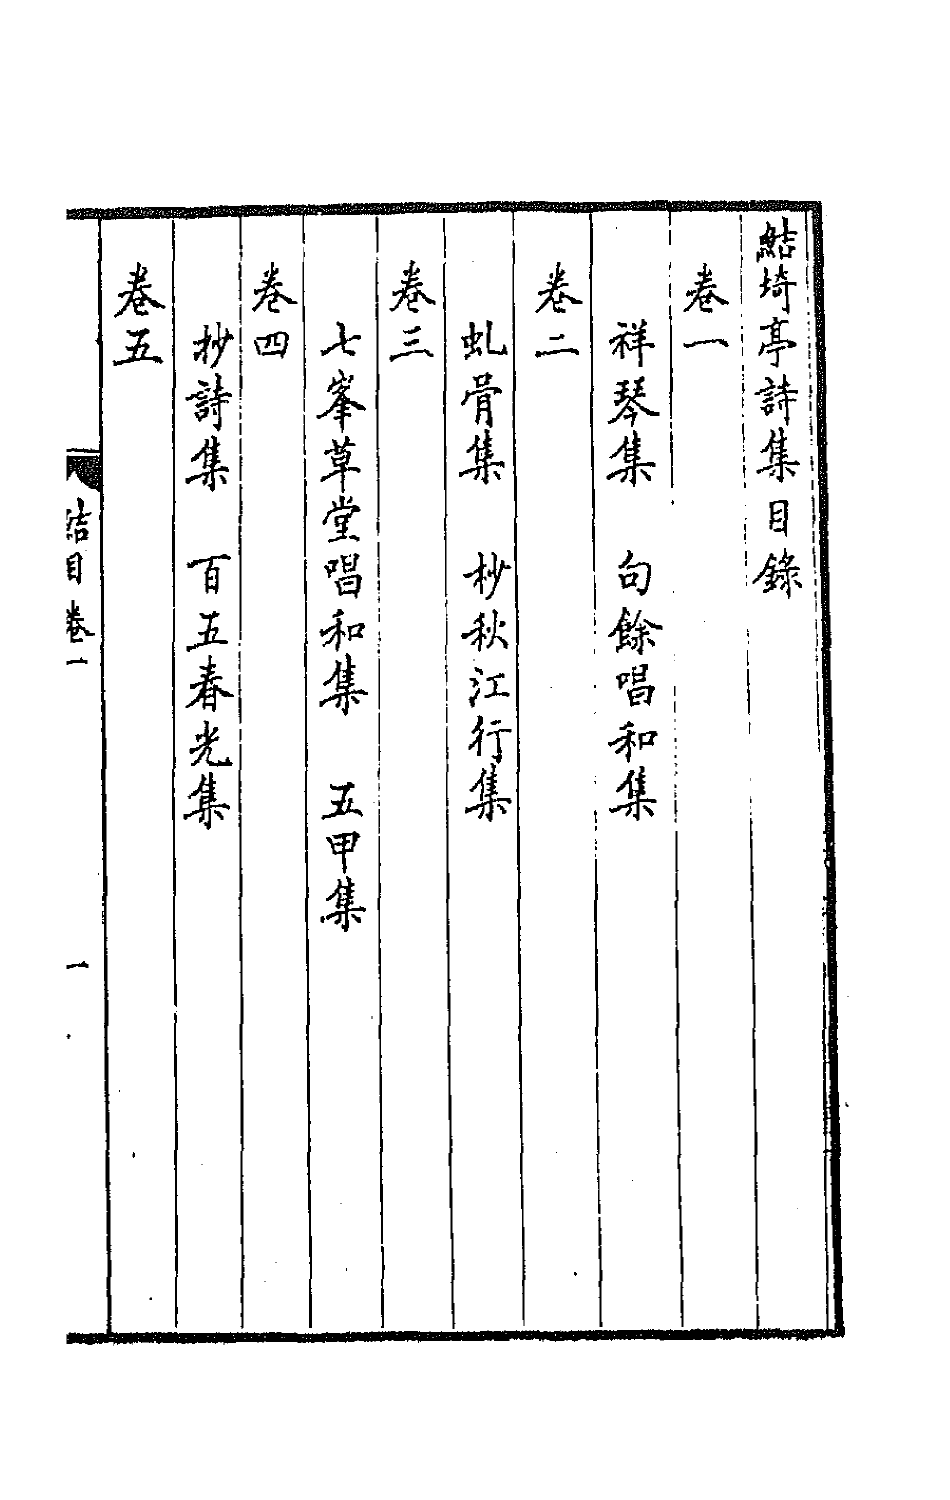 鮚埼亭詩集目錄
卷一
祥琴集　句餘唱和集
卷二
虬骨集　杪秋江行集
卷三
七峯草堂唱和集　五甲集
卷四
抄詩集　百五春光集
卷五
目卷一
一